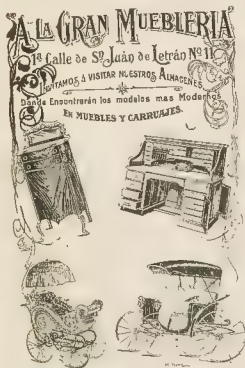 "A LA GRAN MUEBLERIA"
1ª Calle de Sn Juan de Letrán No 11
INVITAMOS A VISITAR NUESTROS ALMACENES
Donde Encontrarán los modelos mas Modernos
EN MUEBLES Y CARRUAJES.